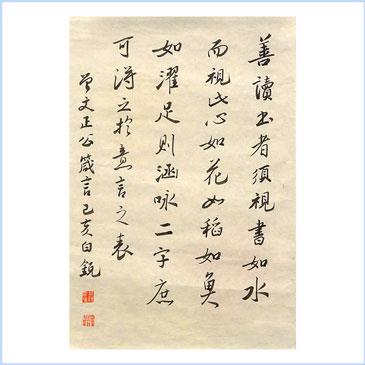 善讀書者須視書如水
而視此心如花如稻如魚
如濯足則涵咏二字庶
可得之於意言之表
曾文正公箴言己亥白銳